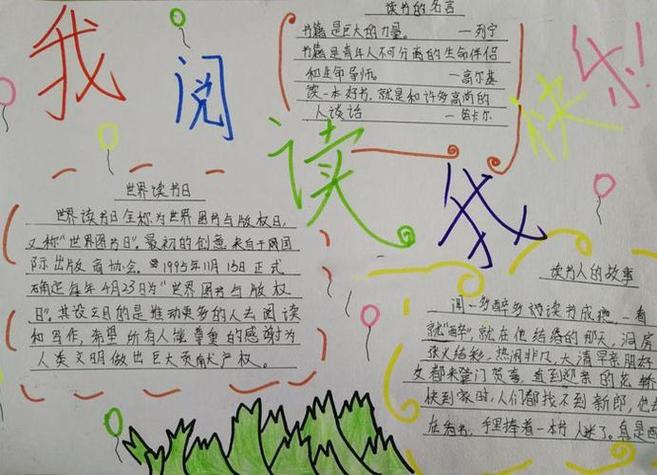 我
阅
读
我
快
乐!
读书的名言
书籍是巨大的力量。 —列宁
书籍是青年人不可分离的生命伴侣
和生命导师。 —高尔基
读一本好书,就是和许多高尚的
人谈话 —笛卡尔
世界读书日
世界读书日全称为世界图书与版权日,
又称“世界图书日”。最初的创意来自于
际出版商协会。1995年11月15日正式
确定每年4月23日为“世界图书与版权
日”,其设立目的是推动更多的人去阅读
和写作,希望所有人能尊重的感谢为
人类文明做出巨大贡献产权。
读书人的故事
闻一多醉多 读书成瘾,一看
就“醉”,就在他结婚的那天,洞房
张灯结彩,热闹非凡,大清早亲朋好
友都来登门贺喜,直到迎亲的花轿
快到家时,人们都找不到新郎,
在书 ,手里捧着一本书入迷了。